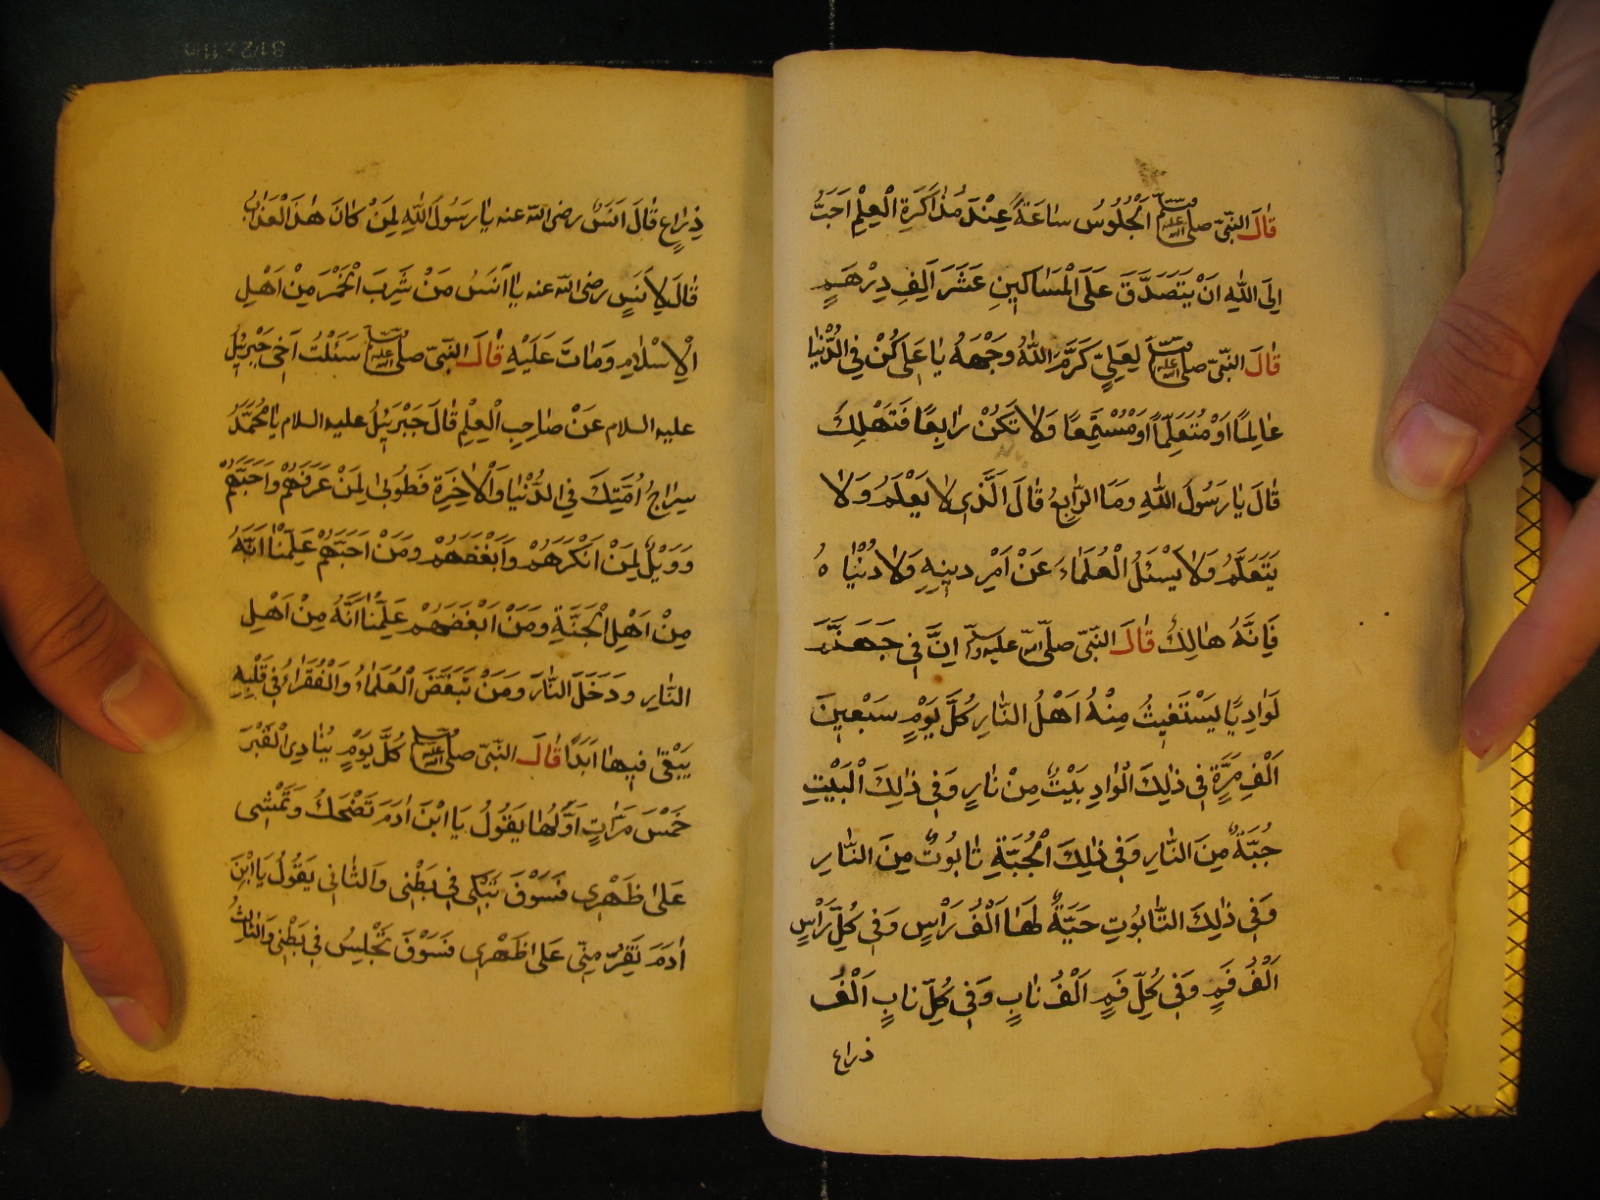 قَالَ النَّبِيّ صلى الله عليه وسلم اَلْجُلُوسُ سَاعَةً عِنْدَ مُذَاكَرَةِ الْعِلْمِ اَحَبُّ
اِلَى اللّٰهِ اَنْ يَتَصَدَّقَ عَلَى الْمَسَاكِينِ عَشَرَ اَلِفِ دِرْهَمٍ
قَالَ النَّبِيّ صلى الله عليه وسلم لِعَلِيٍّ كَرَّمَ اللّٰهُ وَجْهَهُ يَا عَلِى كُنْ فِى الدُّنْيَا
عَالِمًا اَوْ مُتَعَلِّمًا اَوْ مُسْتَمِعًا وَلَا تَكُنْ رَابِعًا فَتَهْلِكَ
قَالَ يَا رَسُولَ اللّٰهِ وَمَا الرَّابِعُ قَالَ الَّذِى لَا يَعْلَمُ وَلَا
يَتَعَلَّمُ وَلَا يَسْئَلُ الْعُلَمَاءَ عَنْ اَمْرِ دِينِهِ وَلَا دُنْيَا ه
فَاِنَّهُ هَالِكٌ قَالَ النَّبِيّ صلى الله عليه وسلم اِنَّ فِى جَهَنَّمَ
لَوَادِيًا يَسْتَغِيثُ مِنْهُ اَهْلُ النَّارِ كُلَّ يَوْمٍ سَبْعِينَ
اَلْفِ مَرَّةٍ فِى ذٰلِكَ الْوَادِ بَيْتٌ مِنْ نَارٍ وَفِى ذٰلِكَ الْبَيْتِ
جُبَّةٌ مِنَ النَّارِ وَفِى ذٰلِكَ الْجُبَّةِ تَابُوتٌ مِنَ النَّارِ
وَفِى ذٰلِكَ التَّابُوتِ حَيَّةٌ لَهَا اَلْفُ رَاْسٍ وَفِى كُلِّ رَاْسٍ
اَلْفُ فَمٍ وَفِى كُلِّ فَمٍ اَلْفُ نَابٍ وَفِى كُلِّ نَابٍ اَلْفُ
ذراع
ذِرَاعٍ قَالَ اَنَسٌ رضى الله عنه يَا رَسُولَ اللّٰهِ لِمَنْ كَانَ هٰذَا الْعَذَابُ
قَالَ لِاَنَسٍ رضى الله عنه يَا اَنَسُ مَنْ شَرِبَ الْخَمْرَ مِنْ اَهْلِ
الْاِسْلَامِ وَمَاتَ عَلَيْهِ قَالَ النَّبِيّ صلى الله عليه وسلم سَئَلْتُ اَخِى جَبْرَئِيلَ
عليه السلام عَنْ صَاحِبِ الْعِلْمِ قَالَ جَبْرَئِيلُ عليه السلام يَا مُحَمَّدُ
سِرَاجُ اُمَّتِكَ فِى الدُّنْيَا وَالْاٰخِرَةِ فَطُوبَى لِمَنْ عَرَفَهُمْ وَاَحَبَّهُمْ
وَوَيْلٌ لِمَنْ اَنْكَرَهُمْ وَاَبْغَضَهُمْ وَمَنْ اَحَبَّهُمْ عَلِمْنَا اَنَّهُ
مِنْ اَهْلِ الْجَنَّةِ وَمَنْ اَبْغَضَهُمْ عَلِمْنَا اَنَّهُ مِنْ اَهْلِ
النَّارِ وَدَخَلَ النَّارَ وَمَنْ تَبَغَّضَ الْعُلَمَاءُ وَالْفُقَرَاءُ فِى قَلْبِهِ
يَبْقَى فِيهَا اَبَدًا قَالَ النَّبِيّ صلى الله عليه وسلم كُلَّ يَوْمٍ يُنَادِى الْقَبْرَ
خَمْسَ مَرَّاتٍ اَوَّلُهَا يَقُولُ يَا ابْنَ اٰدَمَ تَضْحَكُ وَتَمْشِى
عَلَى ظَهْرِى فَسَوْفَ تَبْكِى فِى بَطْنِى وَالثَّانِى يَقُولُ يَا ابْنَ
اٰدَمَ تَفِرُّ مِنِّى عَلَى ظَهْرِى فَسَوْفَ تَجْلِسُ فِى بَطْنِى وَالثَّالِثُ